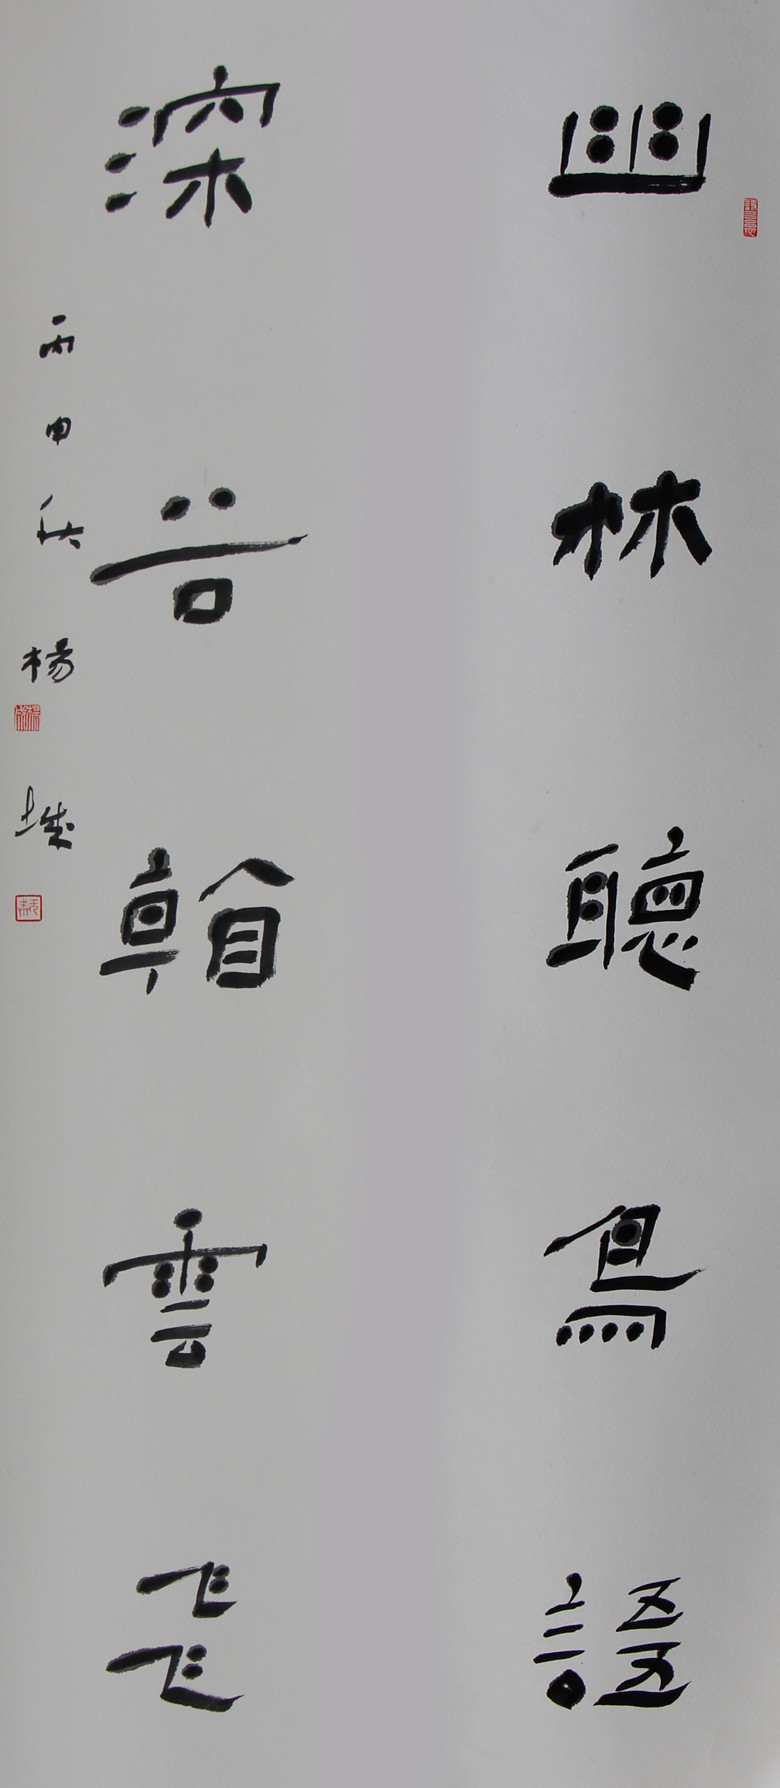 幽林聽鳥語
深谷朝雲飛
丙申秋楊城